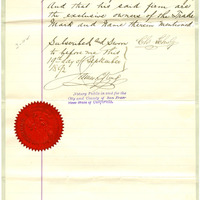 And that his said firm are
the exclusive owners of the Trade
Mark and Name therein mentioned
Subscribed and Sworn
to before me this
19th day of September
1892
Notary Public in and for the
City and County of San Fran-
cisco State of California.